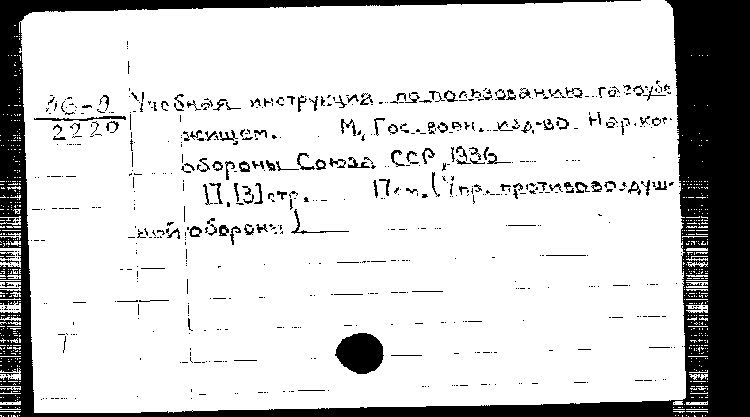 36-9
2220
Учебная инструкция по пользованию газоубе
жищем. М., Гос. воен. изд-во Нар. ком.
обороны Союза ССР, 1936
17, [3] стр. 17 см. (Упр. противовоздуш-
ной обороны)
Т